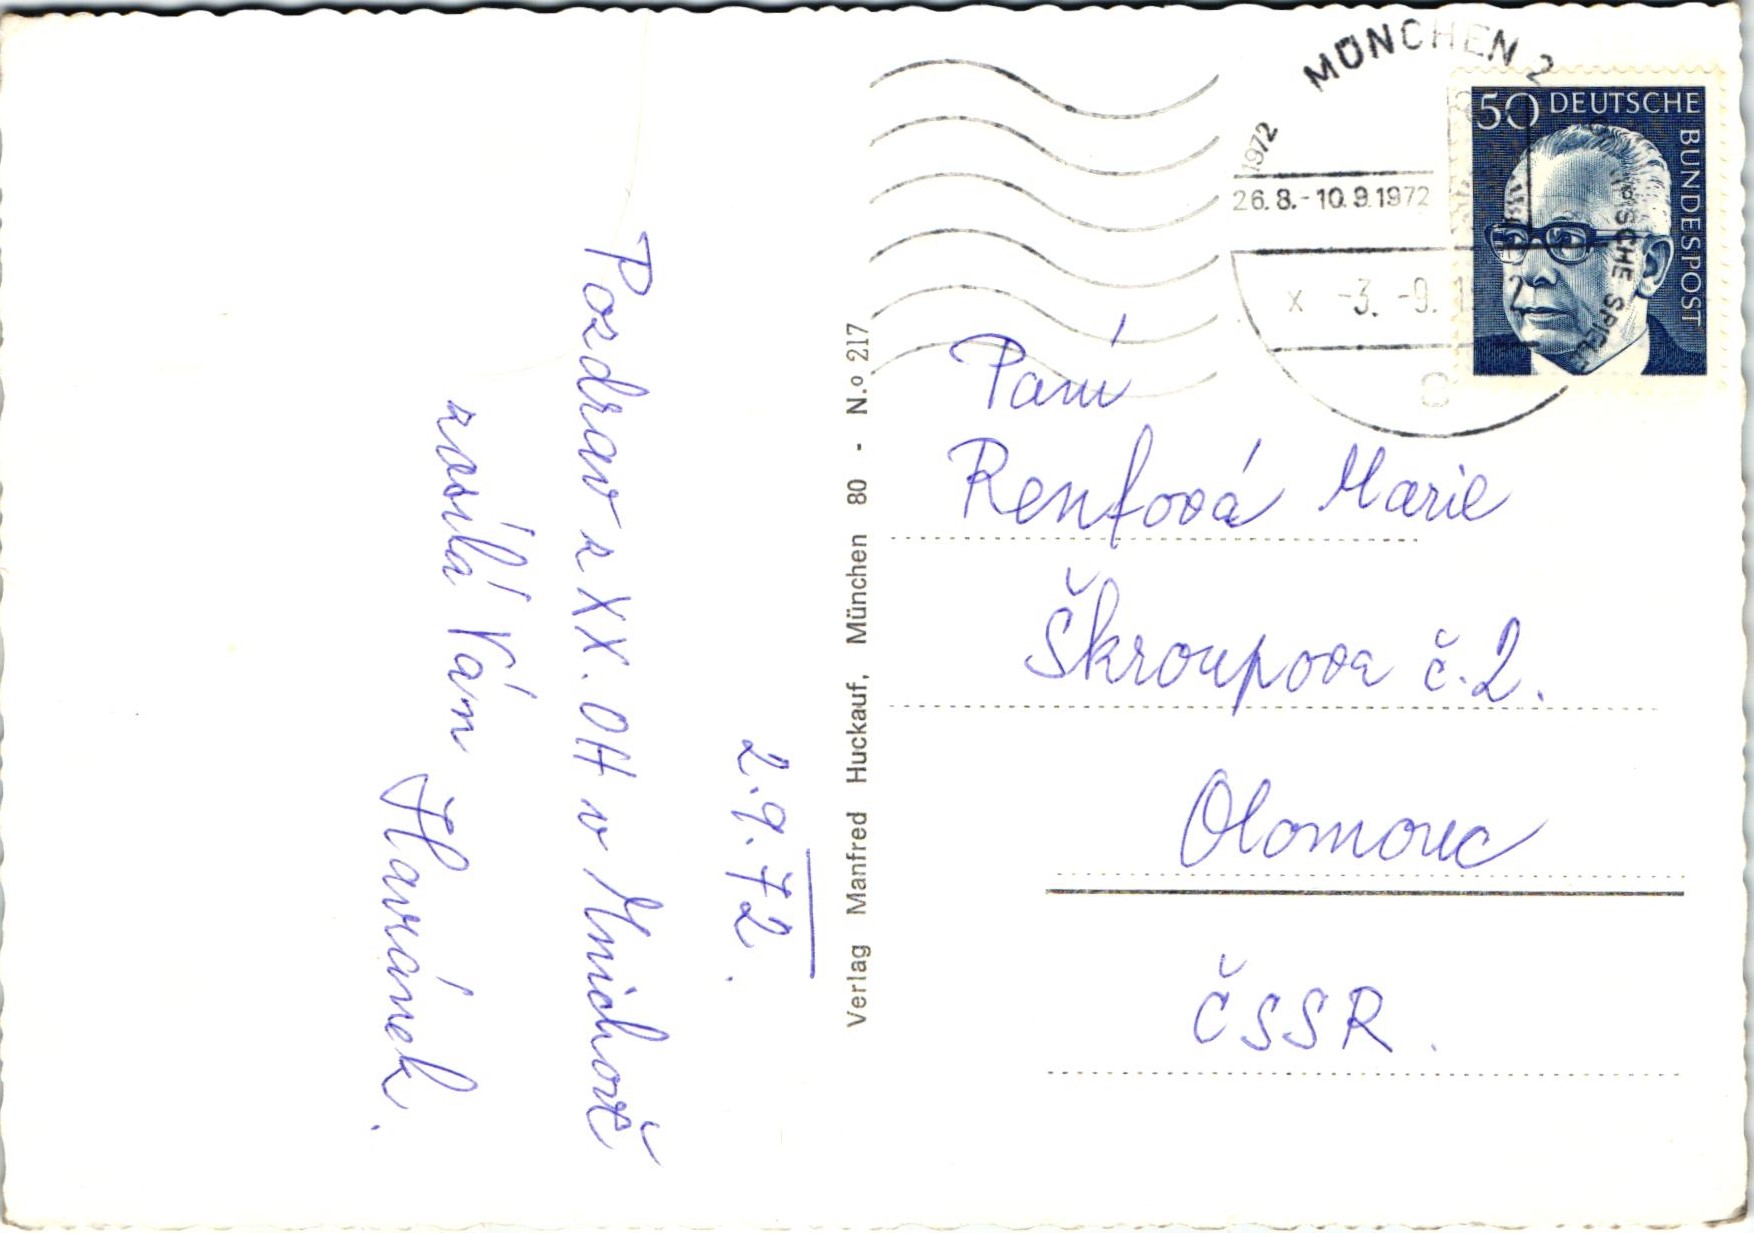 2.9.72.
Pozdrav z XX. OH v Mnichově
zasílá Vám Havránek.
Verlag Manfred Huckauf, München 80 - N.o 217
MÜNCHEN 2
1972
26.8.-10.9.1972
x -3.-9.
SCHE SPIELE
50 DEUTSCHE
BUNDESPOST
Paní
Renfová Marie
Škroupova č.2.
Olomouc
ČSSR.